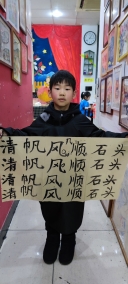 清帆风顺石头
清帆风顺石头
清帆风顺石头
清帆风顺石头